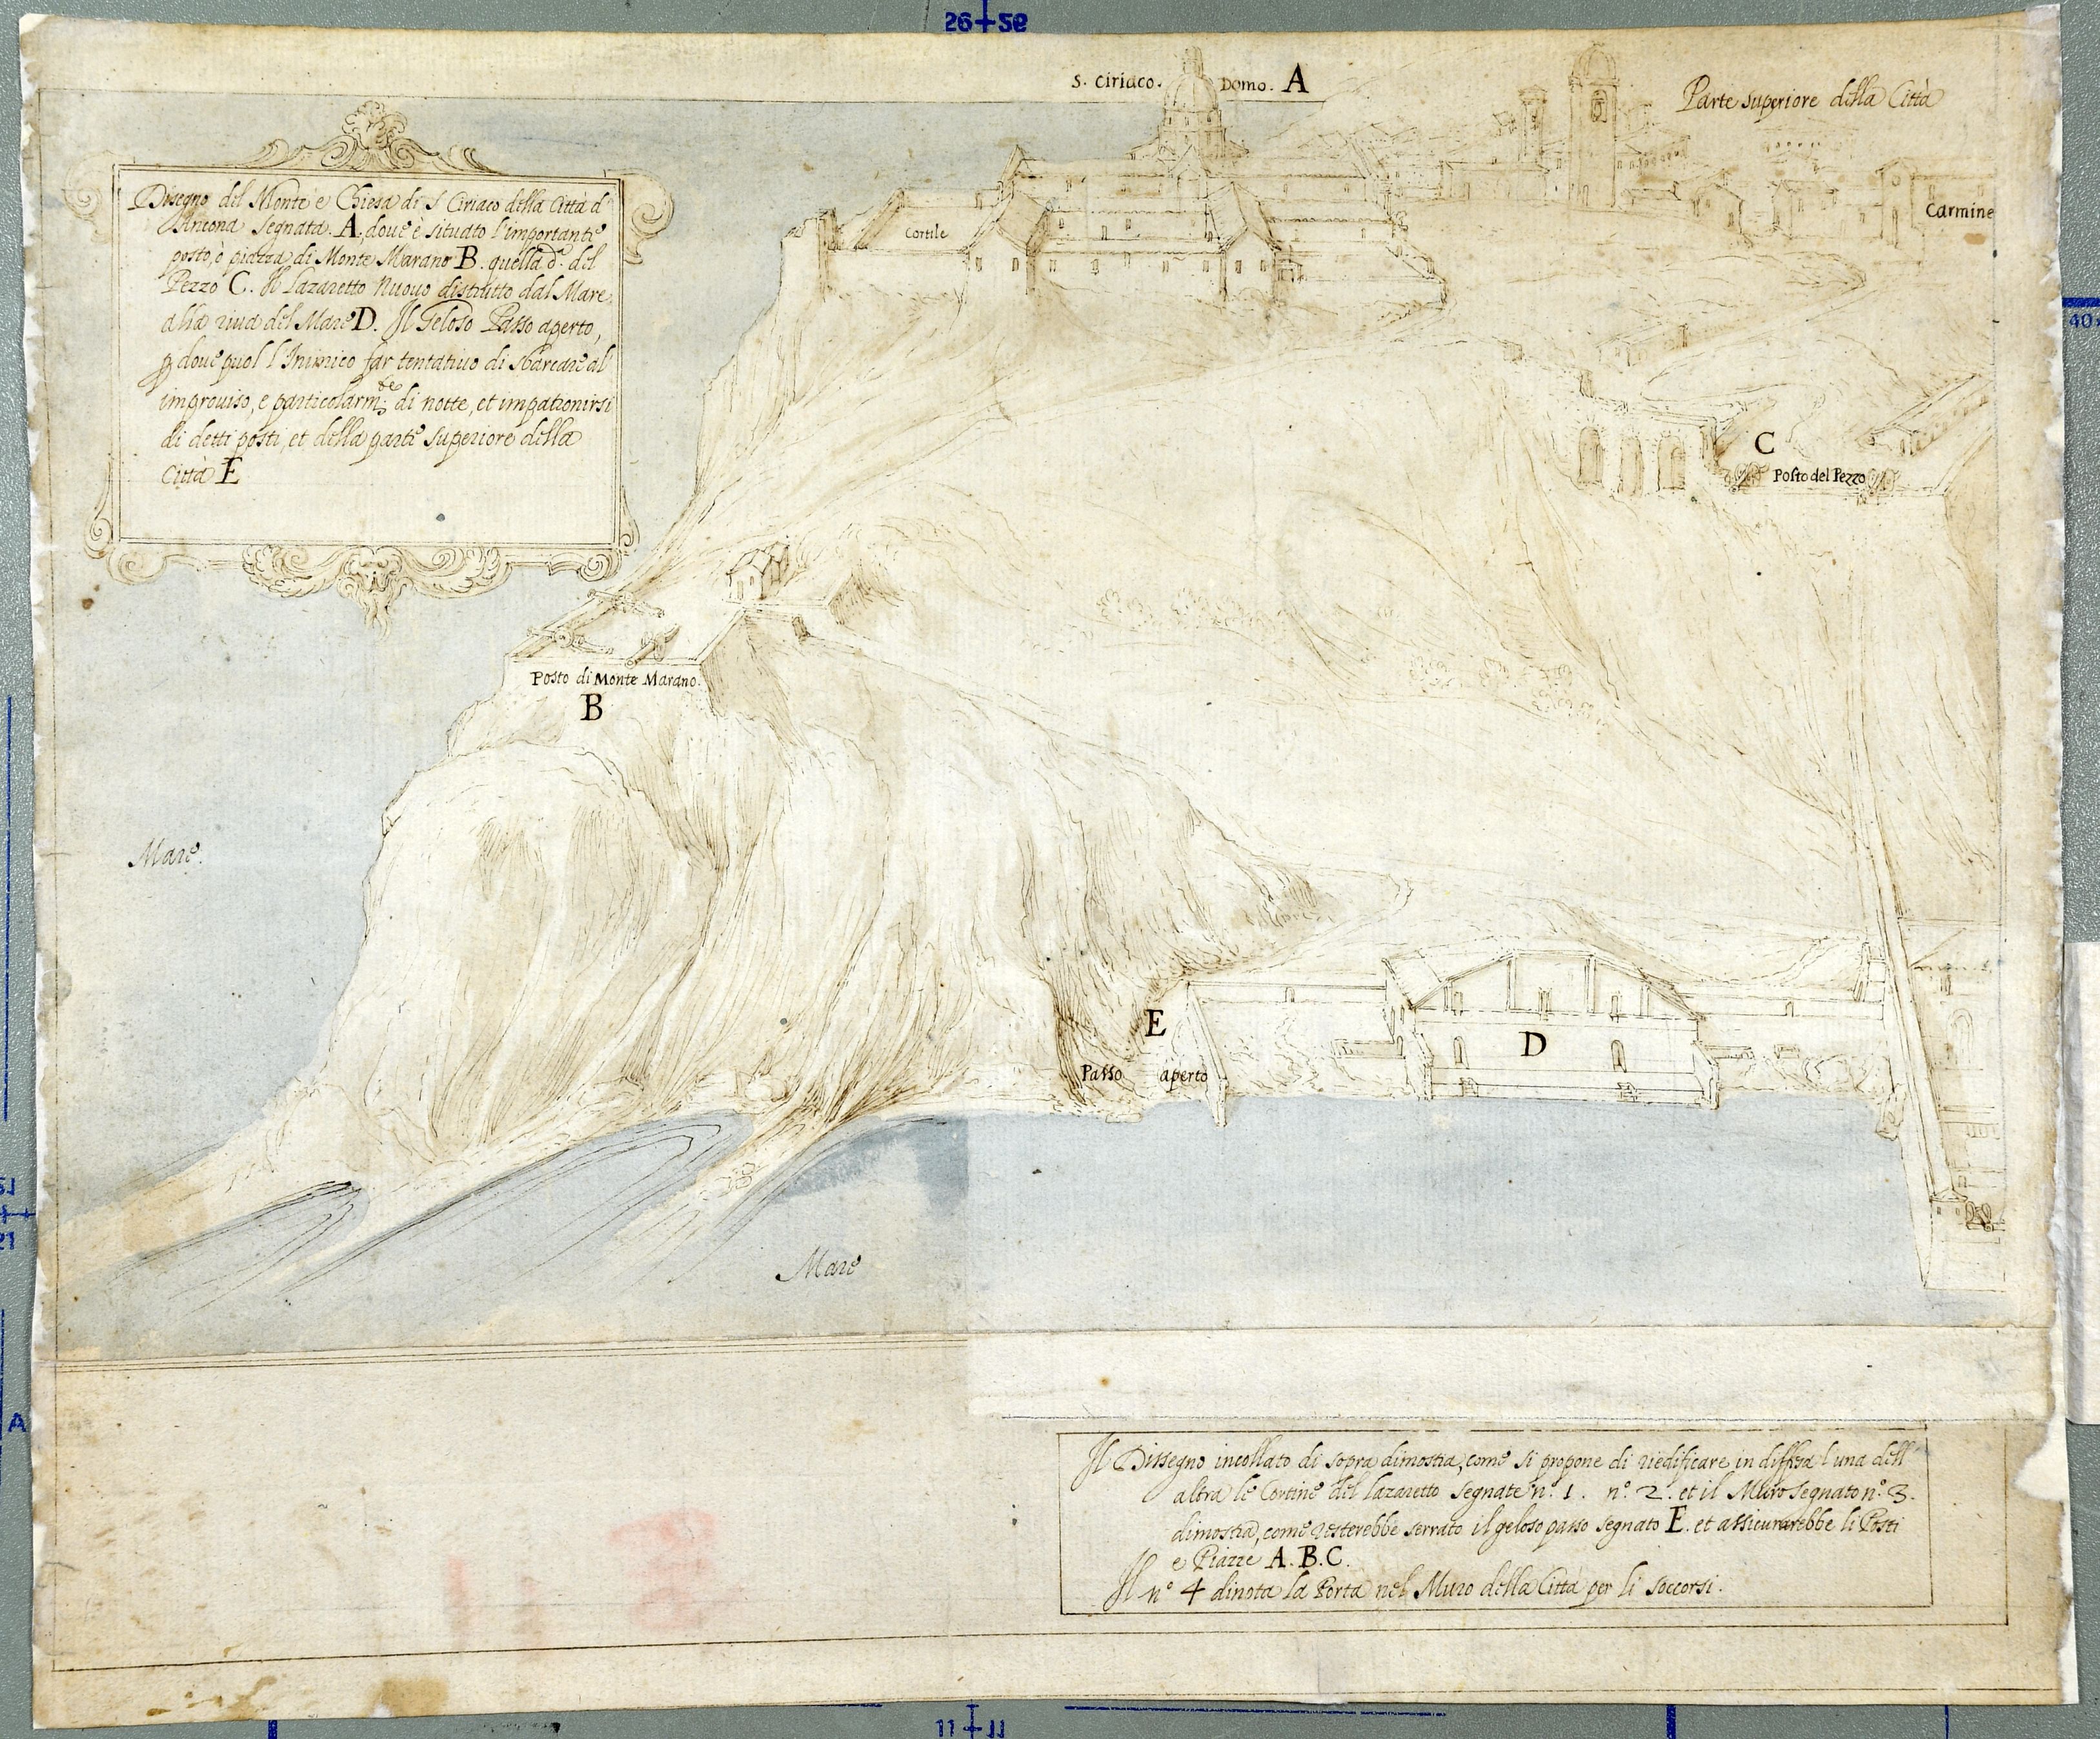 S. Ciriaco. Domo. A
Parte superiore della Città
Disegno del Monte e Chiesa di S Ciriaco della Città d'
Ancona segnata. A, doue è situato l'importante
posto, ò piazza di Monte Marano B. quella d.ª del
Pezzo C. Il Lazaretto Nuouo distrutto dal Mare
alla riua del Mare D. Il Geloso Passo aperto,
ꝑ doue puol l'Inimico far tentatiuo di sbarcare al
improuiso, e particolarm.te di notte, et impatronirsi
di detti posti, et della parte superiore della
Città E
Carmine
Cortile
C
Posto del Pezzo
Posto di Monte Marano.
B
Mare.
E
Passo aperto
D
Mare
Il Dissegno incollato di sopra dimostra, come si propone di riedificare in diffesa l'una dell'
altra le Cortine del Lazaretto segnate n.º 1. n.º 2. et il Muro segnato n.º 3.
dimostra, come resterebbe serrato il geloso passo segnato E. et assicurarebbe li Posti
e Piazze A. B. C.
Il n.º 4 dinota la Porta nel Muro della Città per li soccorsi.
26 56
40
21
A
11 11